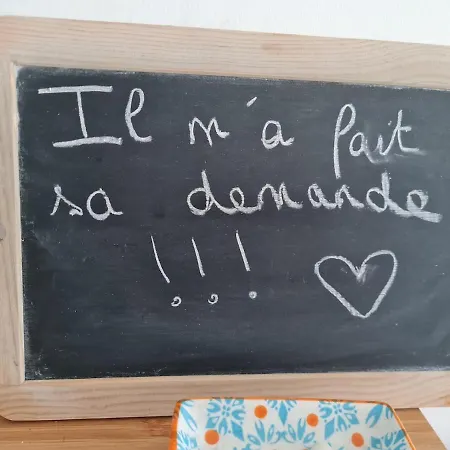 Il m'a fait
sa demande
!!!